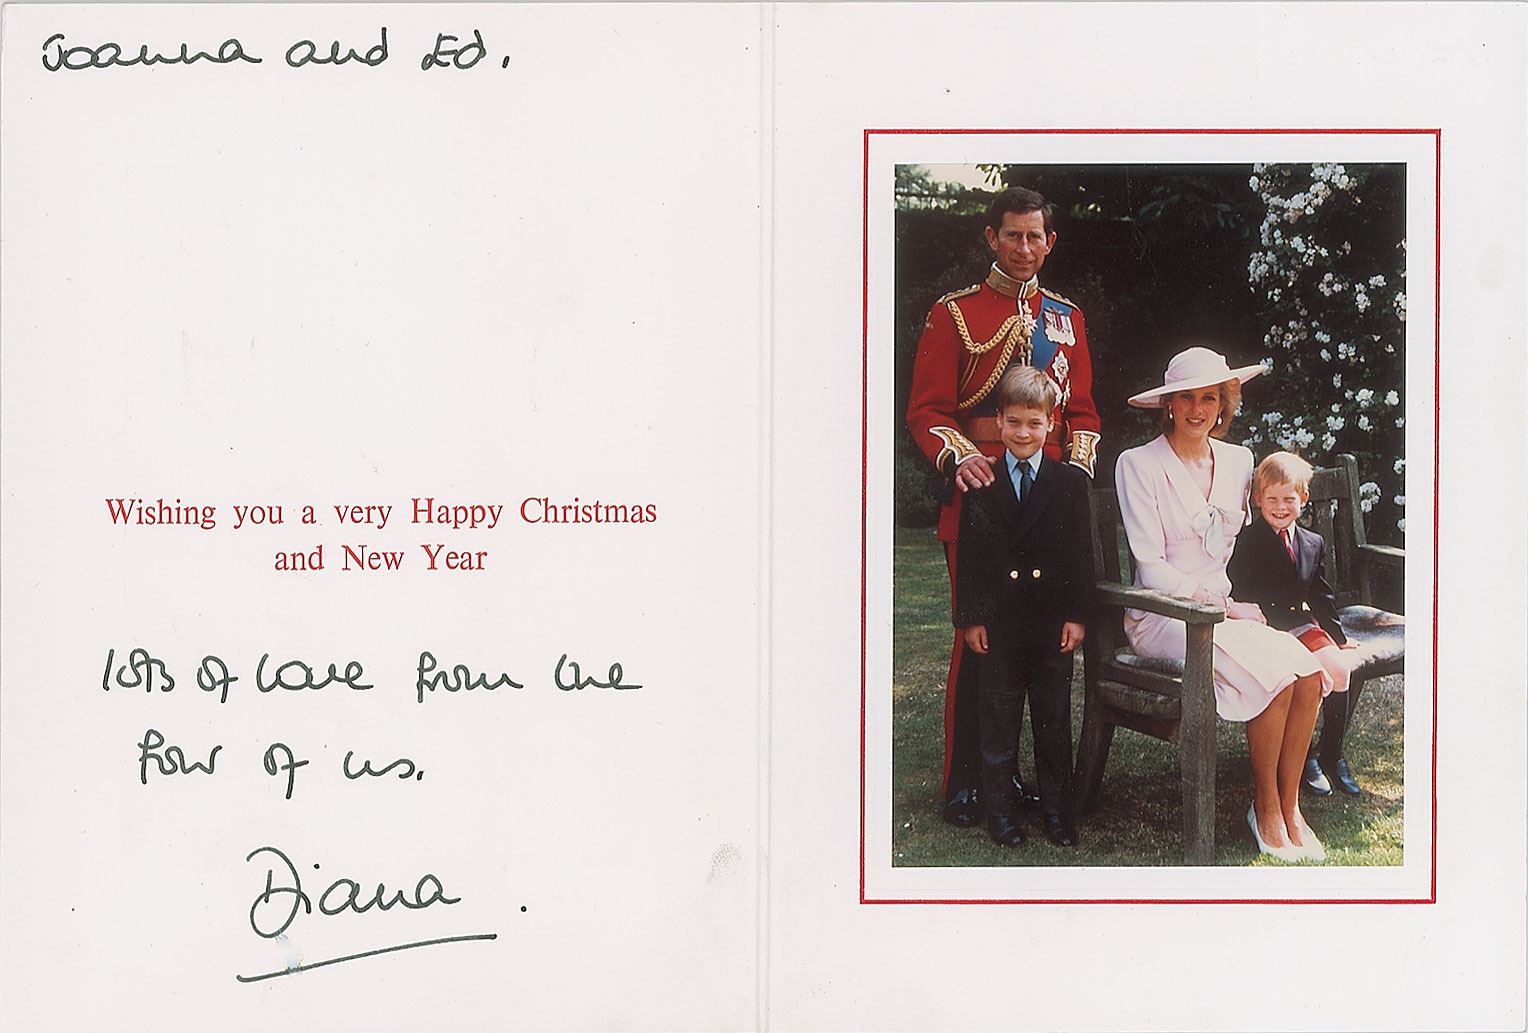 Joanna and Ed.
Wishing you a very Happy Christmas
and New Year
lots of love from the
four of us.
Diana.